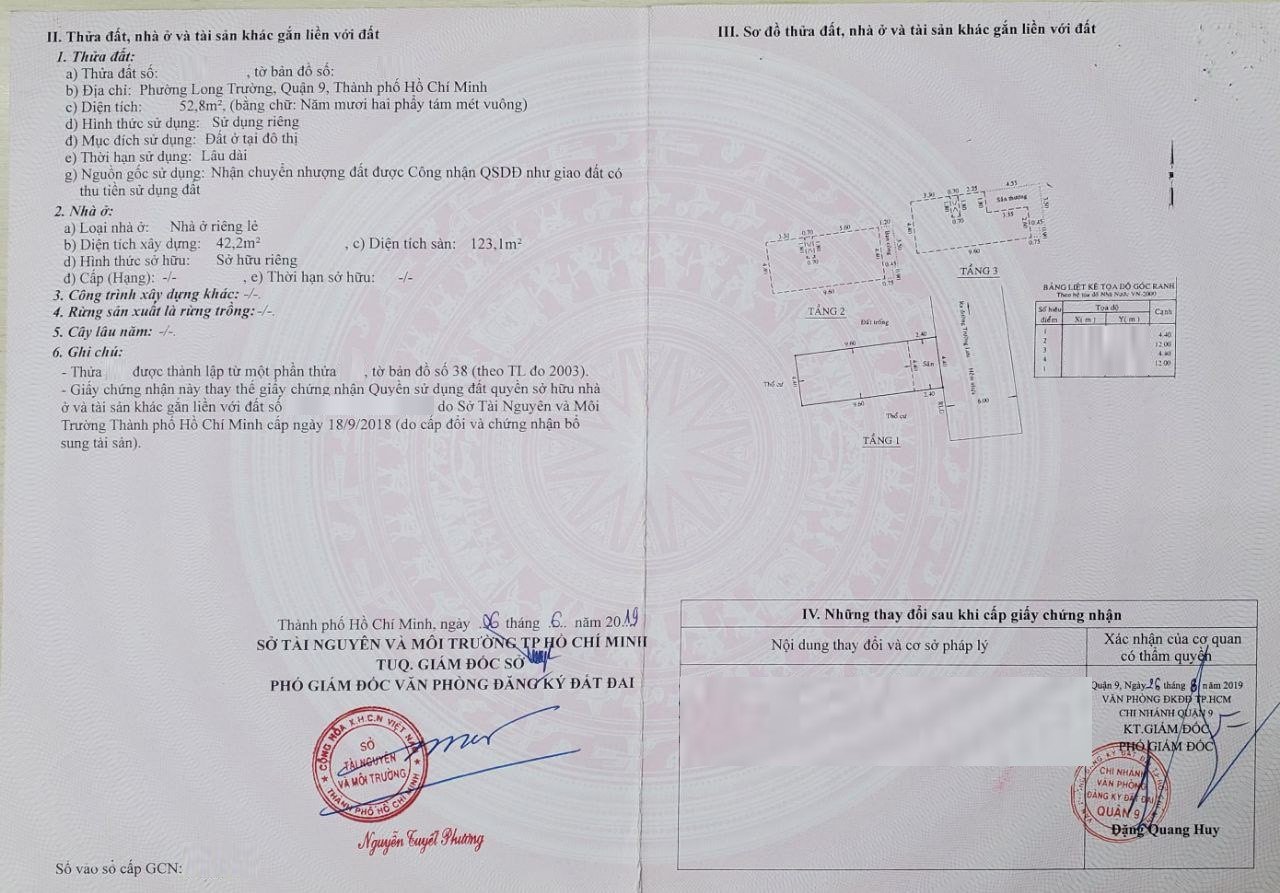 II. Thửa đất, nhà ở và tài sản khác gắn liền với đất
1. Thửa đất:
a) Thửa đất số: , tờ bản đồ số:
b) Địa chỉ: Phường Long Trường, Quận 9, Thành phố Hồ Chí Minh
c) Diện tích: 52,8m², (bằng chữ: Năm mươi hai phẩy tám mét vuông)
d) Hình thức sử dụng: Sử dụng riêng
đ) Mục đích sử dụng: Đất ở tại đô thị
e) Thời hạn sử dụng: Lâu dài
g) Nguồn gốc sử dụng: Nhận chuyển nhượng đất được Công nhận QSDĐ như giao đất có
thu tiền sử dụng đất
2. Nhà ở:
a) Loại nhà ở: Nhà ở riêng lẻ
b) Diện tích xây dựng: 42,2m² , c) Diện tích sàn: 123,1m²
d) Hình thức sở hữu: Sở hữu riêng
đ) Cấp (Hạng): -/- , e) Thời hạn sở hữu: -/-
3. Công trình xây dựng khác: -/-.
4. Rừng sản xuất là rừng trồng: -/-.
5. Cây lâu năm: -/-.
6. Ghi chú:
- Thửa được thành lập từ một phần thửa , tờ bản đồ số 38 (theo TL đo 2003).
- Giấy chứng nhận này thay thế giấy chứng nhận Quyền sử dụng đất quyền sở hữu nhà
ở và tài sản khác gắn liền với đất số do Sở Tài Nguyên và Môi
Trường Thành phố Hồ Chí Minh cấp ngày 18/9/2018 (do cấp đổi và chứng nhận bổ
sung tài sản).
Thành phố Hồ Chí Minh, ngày 06 tháng 6 năm 2019
SỞ TÀI NGUYÊN VÀ MÔI TRƯỜNG TP HỒ CHÍ MINH
TUQ. GIÁM ĐỐC SỞ
PHÓ GIÁM ĐỐC VĂN PHÒNG ĐĂNG KÝ ĐẤT ĐAI
CỘNG HÒA X.H.C.N VIỆT NAM
SỞ
TÀI NGUYÊN
VÀ MÔI TRƯỜNG
THÀNH PHỐ HỒ CHÍ MINH
Nguyễn Tuyết Phương
Số vào sổ cấp GCN:
III. Sơ đồ thửa đất, nhà ở và tài sản khác gắn liền với đất
3.50 0.70 2.25 4.55
Sân thượng
3.55
0.45
0.75
9.60
TẦNG 3
3.50 0.70 5.60 1.20
Ban công
0.45
0.75
9.60
TẦNG 2
Đất trống
Ra đường Trường Lưu
9.60 2.40
Thổ cư 4.40 Sân 4.40 Hẻm nhựa
9.60 2.40 6.00
Thổ cư
TẦNG 1
BẢNG LIỆT KÊ TỌA ĐỘ GÓC RANH
Theo hệ tọa độ Nhà Nước VN-2000
Số hiệu điểm Tọa độ Cạnh
X( m ) Y( m )
1
4.40
2
12.00
3
4.40
4
12.00
1
IV. Những thay đổi sau khi cấp giấy chứng nhận
Nội dung thay đổi và cơ sở pháp lý
Xác nhận của cơ quan
có thẩm quyền
Quận 9, Ngày 26 tháng 8 năm 2019
VĂN PHÒNG ĐKĐĐ TP.HCM
CHI NHÁNH QUẬN 9
KT.GIÁM ĐỐC
PHÓ GIÁM ĐỐC
CHI NHÁNH
VĂN PHÒNG
ĐĂNG KÝ ĐẤT ĐAI
QUẬN 9
Đặng Quang Huy